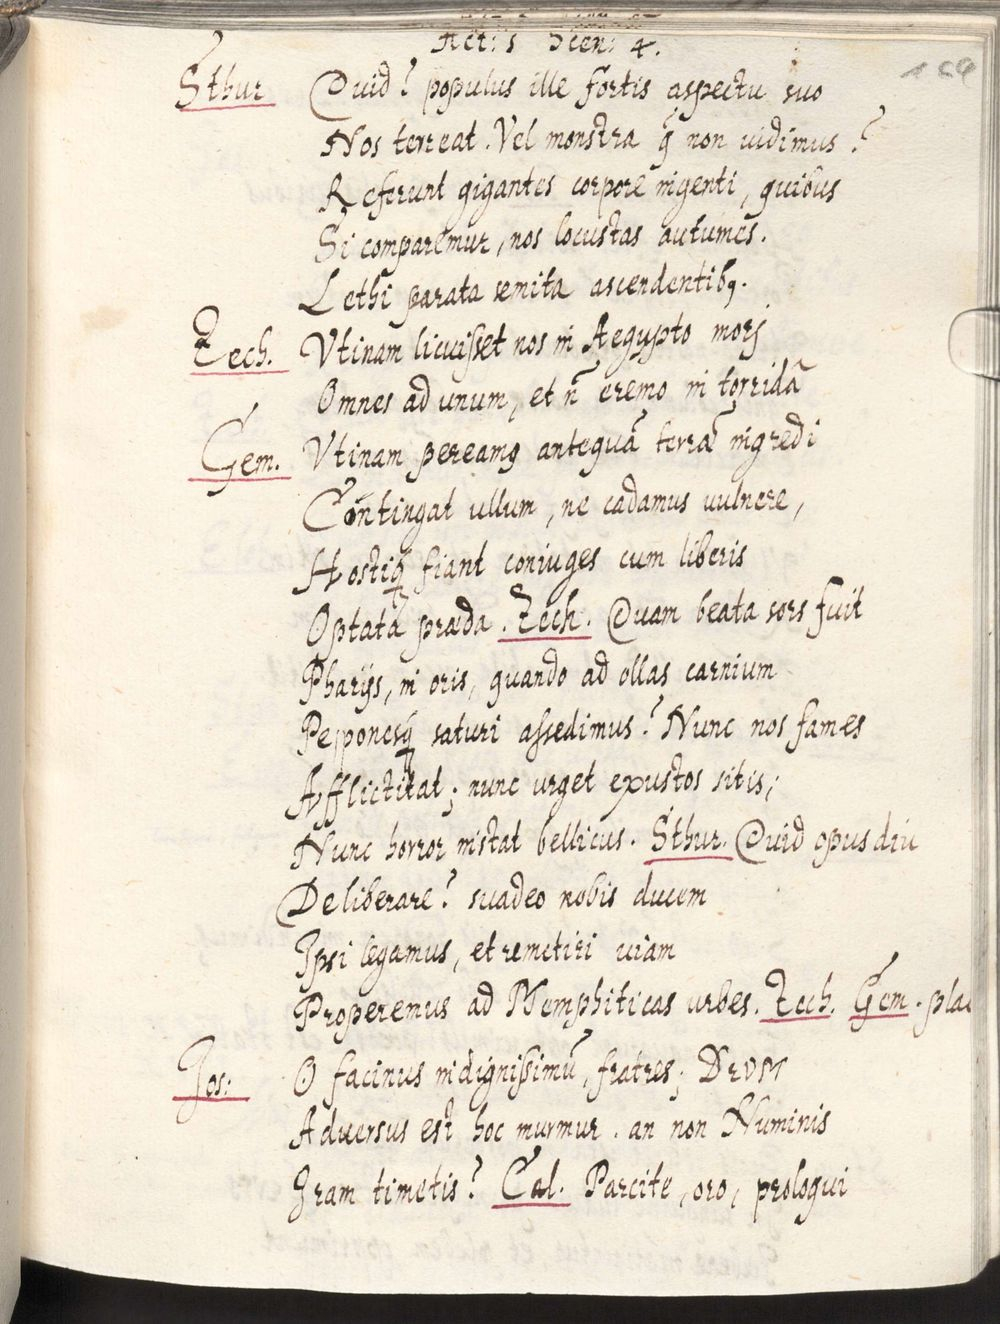 Act: 1 Scen: 4.
Sthur Quid? populus ille fortis aspectu suo
Nos terreat. Vel monstra q̄ non uidimus?
Referunt gigantes corpore ingenti, quibus
Si comparemur, nos locustas autumēs.
Lethi parata semita ascendentibꝫ.
Zech. Vtinam licuisset nos in Aegypto mori
Omnes ad unum, et n̄ eremo in torridā
Gem. Vtinam pereamꝯ antequā terrā ingredi
Contingat ullum, ne cadamus uulnere,
Hostiq́ fiant coniuges cum liberis
Optata praeda. Zech. Quam beata sors fuit
Pharijs, in oris, quando ad ollas carnium
Peponesq́ saturi assedimus? Nunc nos fames
Afflictitat; nunc urget exustos sitis;
Nunc horror instat bellicus. Sthur. Quid opus diu
Deliberare? suadeo nobis ducem
Ipsi legamus, et remetiri uiam
Properemus ad Memphiticas urbes. Zech. Gem. plac
Jos: O facinus indignissimū, fratres; DEUM
Aduersus est hoc murmur. an non Numinis
Iram timetis? Cal. Parcite, oro, prologui